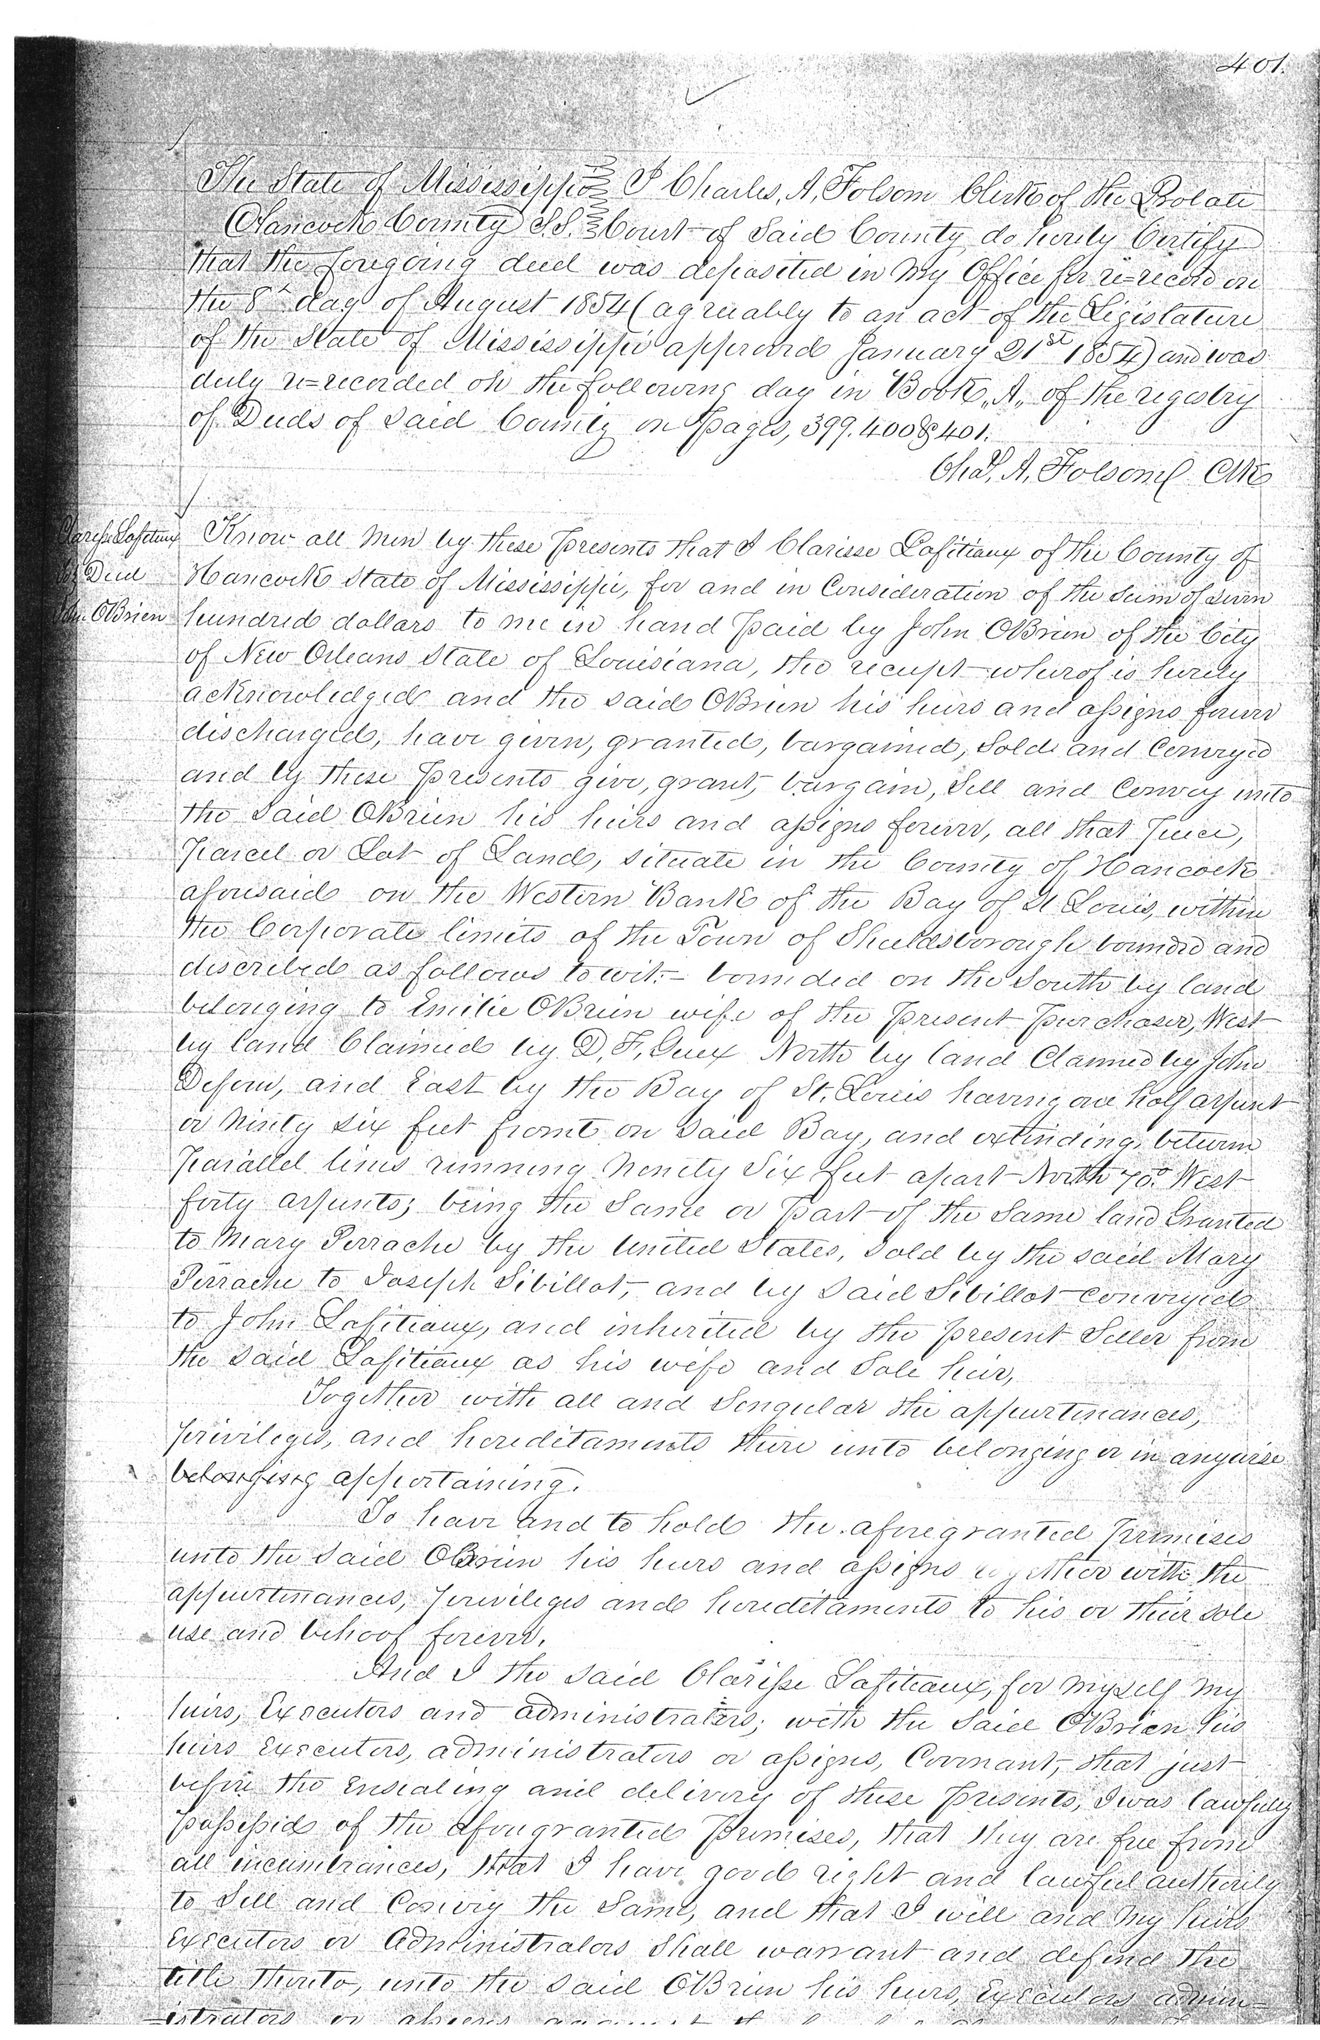 401.
The State of Mississippi I Charles, A, Folsom Clerk of the Probate
Hancock County S.S. Court of Said County do hereby Certify
that the foregoing deed was deposited in my Office for re=record on
the 8th day of August 1854 (agreeably to an act of the Legislature
of the State of Mississippi approved January 21st 1854) and was
duly re=recorded on the following day in Book "A" of the registry
of Deeds of said County on Pages, 399. 400 & 401.
Chas, A, Folsom Clk
Clarisse Lafitiaux
Deed
John OBrien
Know all Men by these Presents that I Clarisse Lafitiaux of the County of
Hancock State of Mississippi, for and in Consideration of the Sum of Seven
hundred dollars to me in hand Paid by John OBrien of the City
of New Orleans State of Louisiana, the receipt whereof is hereby
acknowledged and the said OBrien his heirs and assigns forever
discharged, have given, granted, bargained, Sold and Conveyed
and by these Presents give, grant, bargain, Sell and Convey unto
the Said OBrien his heirs and assigns forever, all that Piece,
Parcel or Lot of Land, situate in the County of Hancock
aforesaid on the Western Bank of the Bay of St Louis, within
the Corporate limits of the Town of Shieldsborough bounded and
discribed as follows to wit:- bounded on the South by land
belonging to Emilie OBrien wife of the Present Purchaser, West
by land Claimed by D, F, Guex North by land Claimed by John
and East by the Bay of St. Louis having one half arpent
or Ninty Six feet front on said Bay, and extending between
Parallel lines running Ninety Six feet apart North 70° West
forty arpents; being the Same or Part of the Same land Granted
to Mary Perrache by the United States, Sold by the said Mary
Perrache to Joseph Sibillot, and by Said Sibillot conveyed
to John Lafitiaux, and inherited by the present Seller from
the said Lafitiaux as his wife and Sole heir,
Together with all and Singular the appurtenances,
privileges, and hereditaments there unto belonging or in anywise
belonging appertaining.
To have and to hold the aforegranted Premises
unto the Said OBrien his heirs and assigns together with the
appurtenances, privileges and hereditaments to his or their sole
use and behoof forever.
And I the said Clarisse Lafitiaux, for Myself My
heirs, Executors and administrators; with the Said OBrien his
heirs Executors, administrators or assigns, Covenant, that just
before the Ensealing and delivery of these Presents, I was lawfully
Possessed of the aforegranted Premises, that they are free from
all incumbrances, that I have good right and lawful authority
to Sell and Convey the Same, and that I will and My heirs
Executors or Administrators Shall warrant and defend the
title thereto, unto the said OBrien his heirs, Executors admin=
=istrators or assigns against the